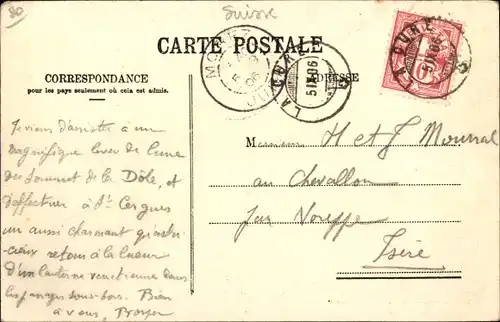 80
Suisse
CARTE POSTALE
MOREZ
LA CURE
5 IX 06
LA CURE
5 IX 06
CORRESPONDANCE
pour les pays seulement où cela est admis.
ADRESSE
Je viens d'assister à un
magnifique lever de lune
du sommet de la Dôle, et
d'effectuer à St Cergues
un aussi charmant
retour à la lueur
d'un lanterne vénitienne dans
les passages sous-bois. Bien
à vous,
M
H et J Mourral
au Chevallon
par Voreppe
Isère